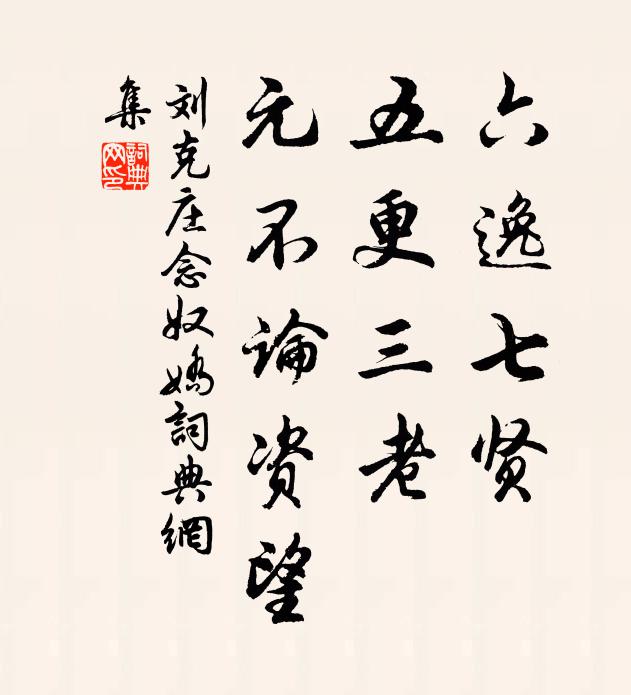 六逸七贤
五更三老
元不論资望
刘克庄念奴嬌詞典網
集
詞典網印